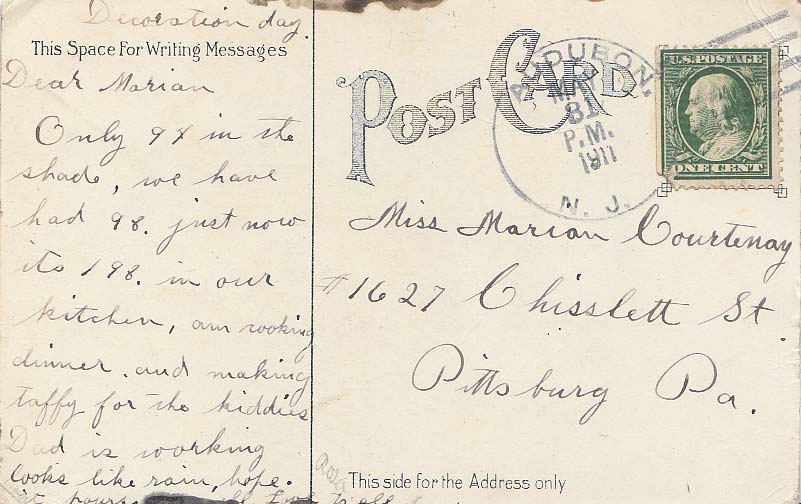 Decoration day.
This Space For Writing Messages
Dear Marian
Only 94 in the
shade, we have
had 98. just now
its 198. in our
kitchen, am cooking
dinner. and making
taffy for the kiddies
Dad is working
looks like rain, hope.
hours
POST CARD
AUDUBON,
MAY
31
P.M.
1911
N. J.
U.S. POSTAGE
ONE CENT
Miss Marian Courtenay
#1627 Chisslett St
Pittsburg Pa.
This side for the Address only